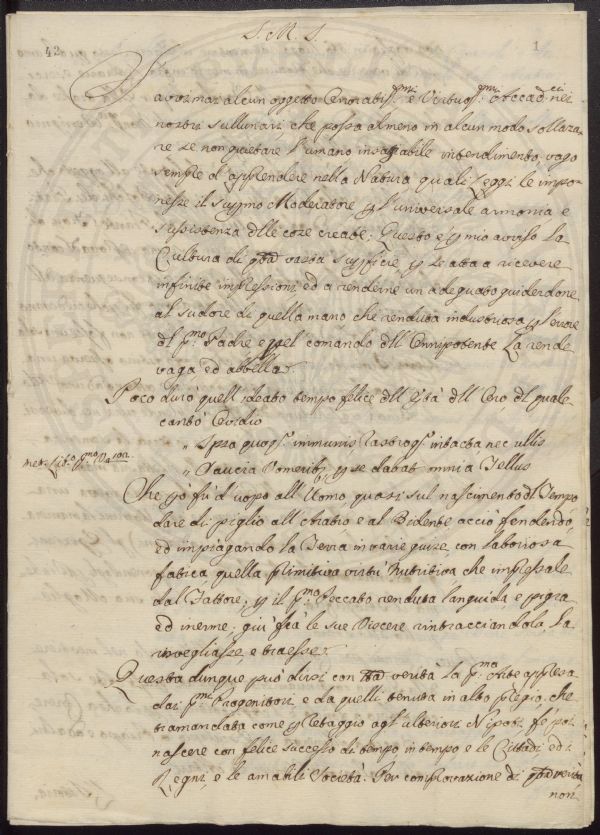 S. M. S.
42 1
Favormar alcun oggetto Onorabiss.mi e Virtuos.mi Accad.ci nei
nostri sullunari che possa almeno in alcun modo sollaza
re se non quietare l'umano insaziabile intendimento, vago
sempre d'apprendere nella Natura quali Leggi le impo
nesse il Supmo Moderatore p l'universale armonia e
sussistenza dlle cose create; Questo è p mio aviso la
Cultura di qta vasta Supficie p se atta a ricevere
infinite impressioni ed a renderne un adeguato guiderdone
al sudore di quella mano che renduta industriosa p l'errore
dl p.mo Padre e pel comando dll'Onnipotente la rende
vaga ed abbella.
Poco durò quell'ideato tempo felice dll'Età dll'Oro dl quale
cantò Ovidio
„ Ipsa quoq. immunis rastroq. intacta nec ullis
Met. lib.o p.mo
„ Saucia Vomerib. p se dabat omnia Tellus
Che p ciò fù d'uopo all'Uomo quasi sul nascimento dl Tempo
dare di piglio all'Aratro e al Bidente acciò fendendo,
ed impiagando la Terra in varie guise, con laboriosa
fatica quella primitiva virtù Nutritiva che impressale
dal Fattore, p il p.mo Peccato renduta languida e pigra
ed inerme; giù frà le sue Viscere rintracciandola, la
risvegliasse, e traesse.
Questa dunque può dirsi con tta verità la p.ma Arte appresa
dai p.mi Progenitori e da quelli tenuta in alto pregio, che
tramandata come p retaggio agl'ulteriori Nipoti, fe' poi
nascere con felice successo di tempo in tempo e le Cittadi ed i
Regni, e le amabili Società. Per comprovazione di qta verità
non